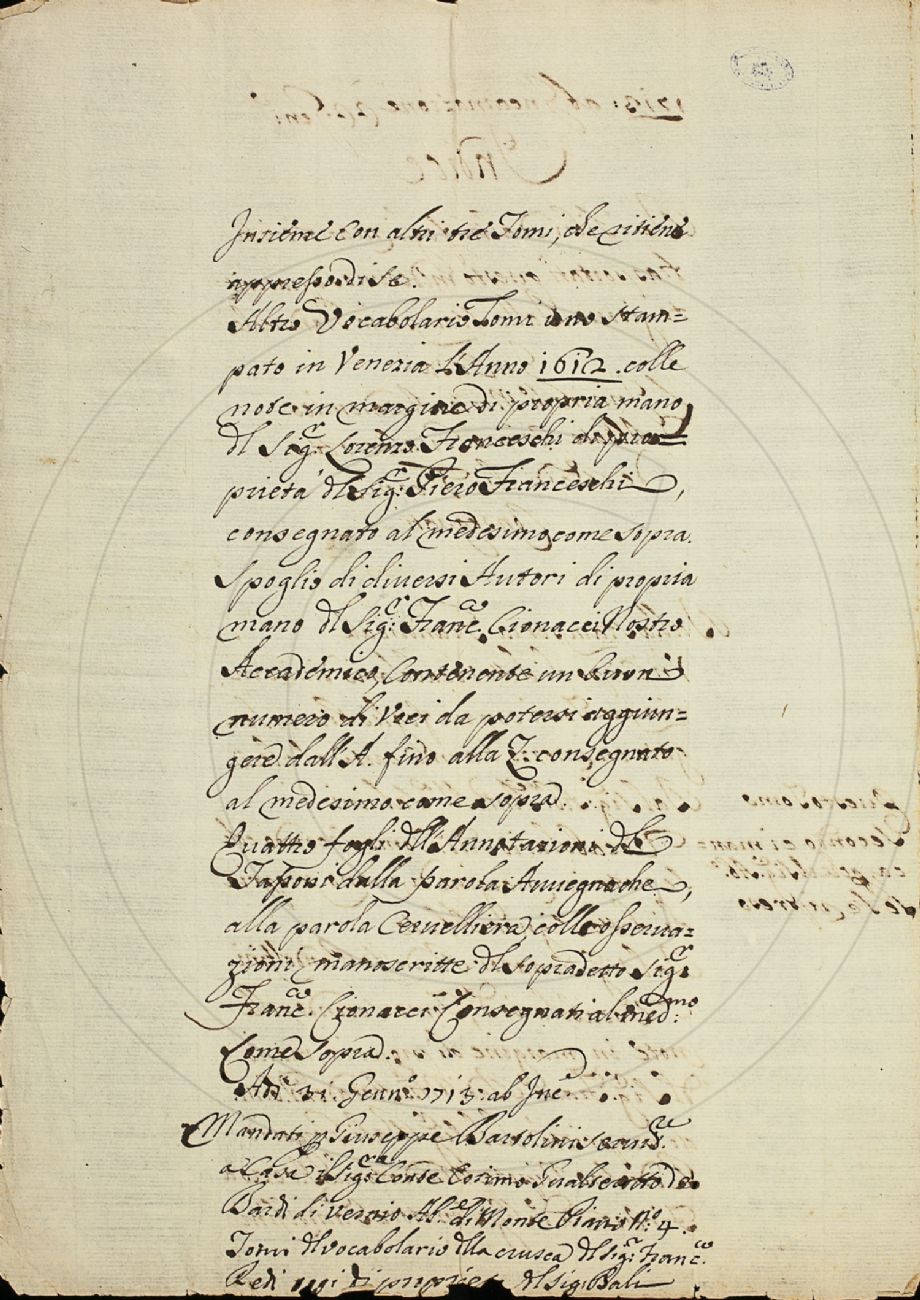 Insieme con altri tre Tomi, che ritiene
appresso di se.
Altro Vocabolario Tomi uno stam=
pato in Venezia L'Anno 1612. colle
note in margine di propria mano
dl Sig.r Lorenzo Franceschi di pro=
prietà dl Sig.r Piero Franceschi,
consegnato al medesimo come sopra.
Spoglio di diversi Autori di propria
mano dl Sig.r Franc.co Cionacci Nostro
Accademico, Contenente un buon
numero di Voci da potersi aggiun=
gere dall'A. fino alla Z. consegnato
al medesimo come sopra
Quattro fogli dll'Annotazioni dl
dalla parola Avvegnache,
alla parola Cervelliera, coll'osserva=
zioni manoscritte dl sopradetto Sig.r
Franc.co Cionacci Consegnati al med.mo
Come Sopra.
Adi 31. Genn.o 1713. ab Inc.e
Mandati p Giuseppe Bartolini
a Casa il Sig.r Conte Cosimo Gualterotto de
Bardi di Vernio Ab.e di Monte Piano N.o 4.
Tomi dl vocabolario dlla crusca dl Sig.r Franc.co
Redi di dl Sig: Bali